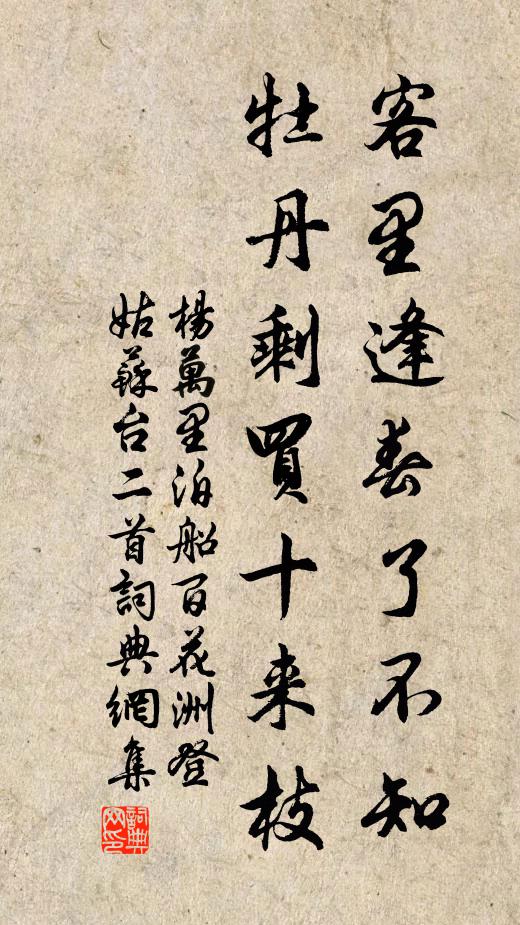 客里逢春了不知
牡丹剩買十来枝
楊萬里泊船百花洲登
姑蘇台二首詞典網集
詞典
网印